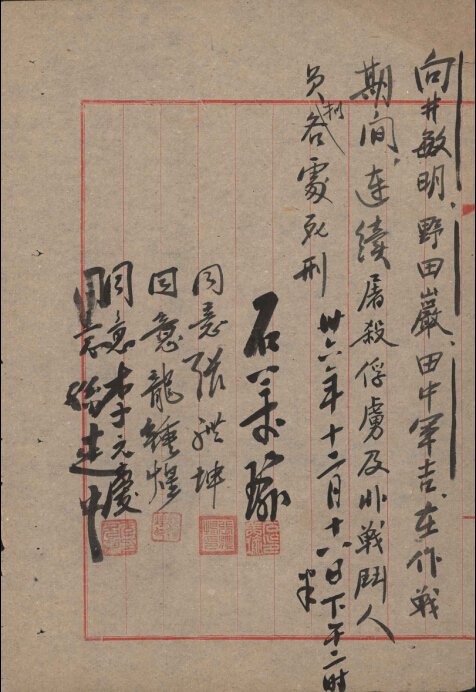 向井敏明、野田巖、田中軍吉、在作戰
期间、连續屠殺俘虜及非戰鬥人
员判各處死刑
卅六年十二月十八日下午二时半
石美瑜
同意張體坤
同意龍鍾煌
同意李元慶
同意徐建中